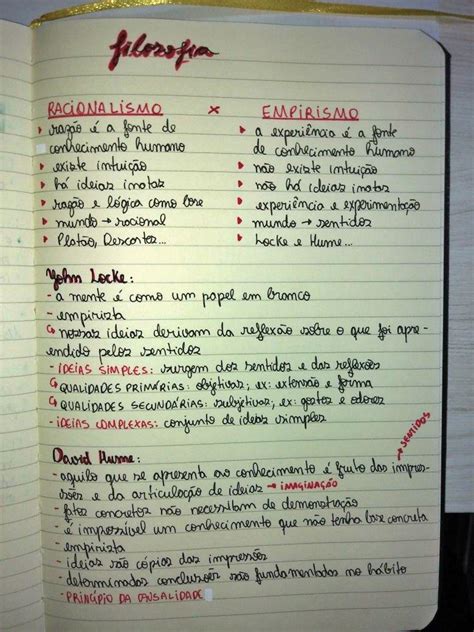 filosofia
RACIONALISMO x EMPIRISMO
▸ razão é a fonte de ▸ a experiência é a fonte
conhecimento humano de conhecimento humano
▸ existe intuição ▸ não existe intuição
▸ há ideias inatas ▸ não há ideias inatas
▸ razão e lógica como base ▸ experiência e experimentação
▸ mundo → racional ▸ mundo → sentidos
▸ Platão, Descartes... ▸ Locke e Hume...
John Locke:
- a mente é como um papel em branco
- empirista
↳ nossas ideias derivam da reflexão sobre o que foi apre-
endido pelos sentidos
- IDEIAS SIMPLES: surgem dos sentidos e das reflexões
↳ QUALIDADES PRIMÁRIAS: objetivas; ex: extensão e forma
↳ QUALIDADES SECUNDÁRIAS: subjetivas; ex: gostos e odores
- IDEIAS COMPLEXAS: conjunto de ideias simples
David Hume: → SENTIDOS
- aquilo que se apresenta ao conhecimento é fruto das impres-
sões e da articulação de ideias → IMAGINAÇÃO
- fatos concretos não necessitam de demonstração
- é impossível um conhecimento que não tenha base concreta
- empirista
- ideias são cópias das impressões
- determinadas conclusões são fundamentadas no hábito
- PRINCÍPIO DA CAUSALIDADE